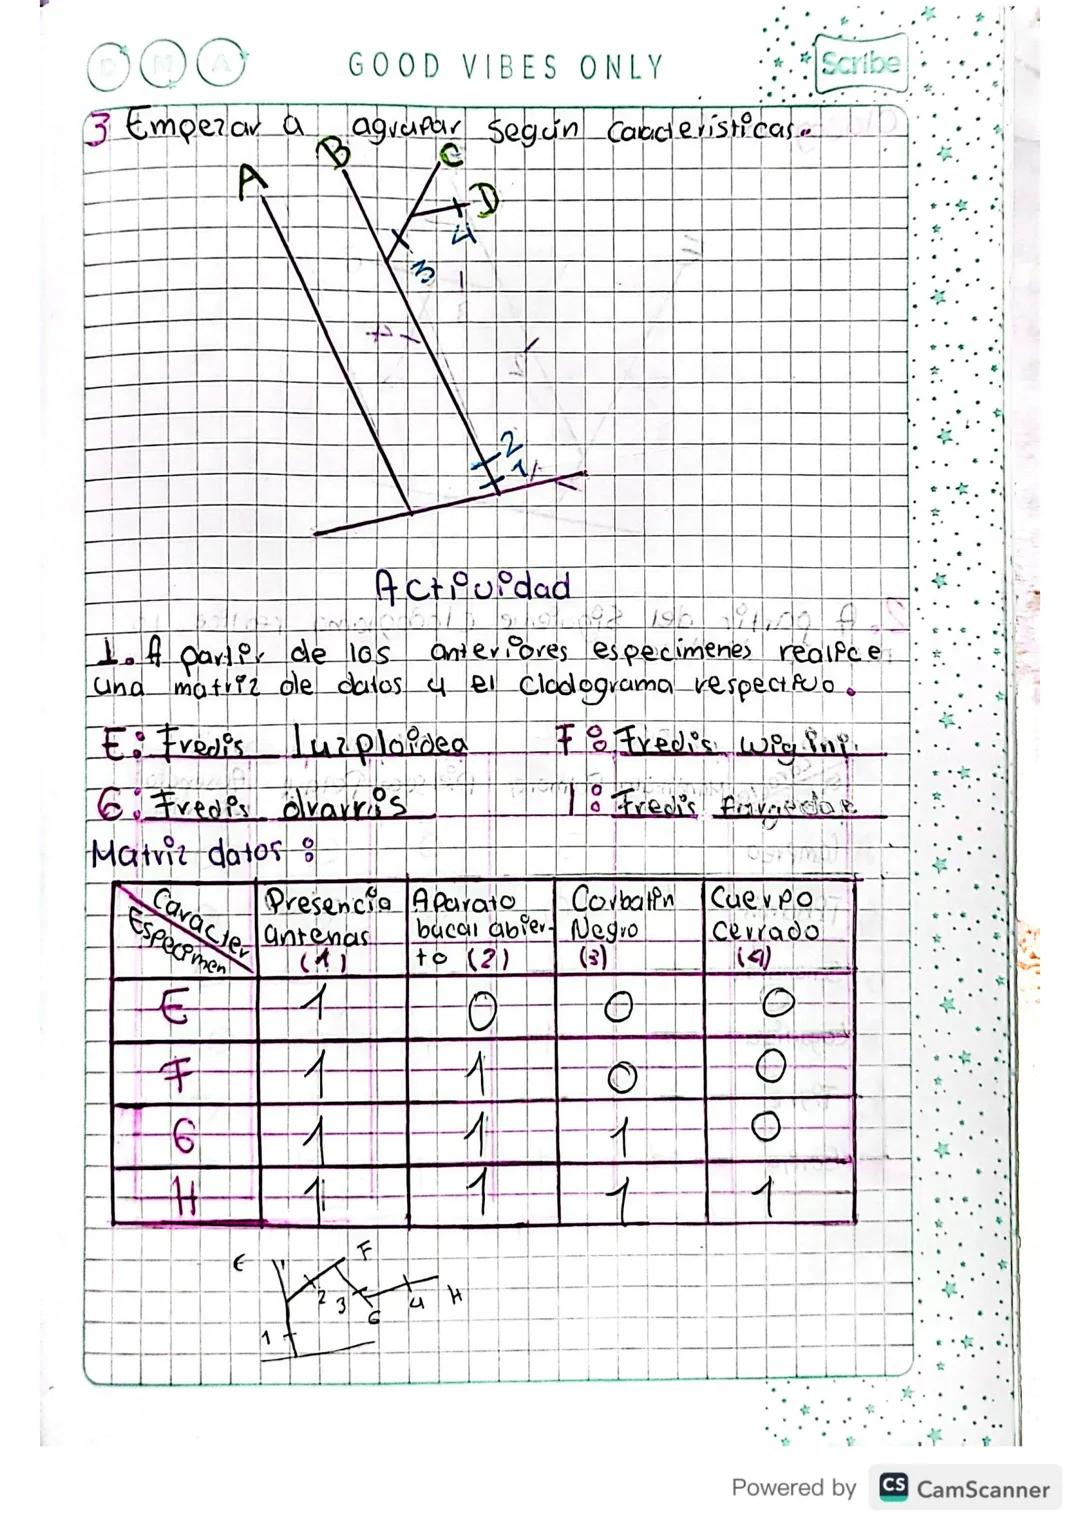 D M A
GOOD VIBES ONLY
Scribe
3 Empezar a agrupar según caracteristicas.
A
B
C
D
4
3
2
1
Actividad
1. A partir de los anteriores especimenes realice
una matriz de datos y el Cladograma respectivo.
E: Fredis Luzploidea F: Fredis wigini
G: Fredis dvarris I: Fredis
Matriz datos:
Caracter Especimen Presencia antenas (1) Aparato bucal abierto (2) Corbatin Negro (3) Cuerpo cerrado (4)
E 1 0 0 0
F 1 1 0 0
G 1 1 1 0
H 1 1 1 1
E F
2 3 G 4 H
1
Powered by CS CamScanner